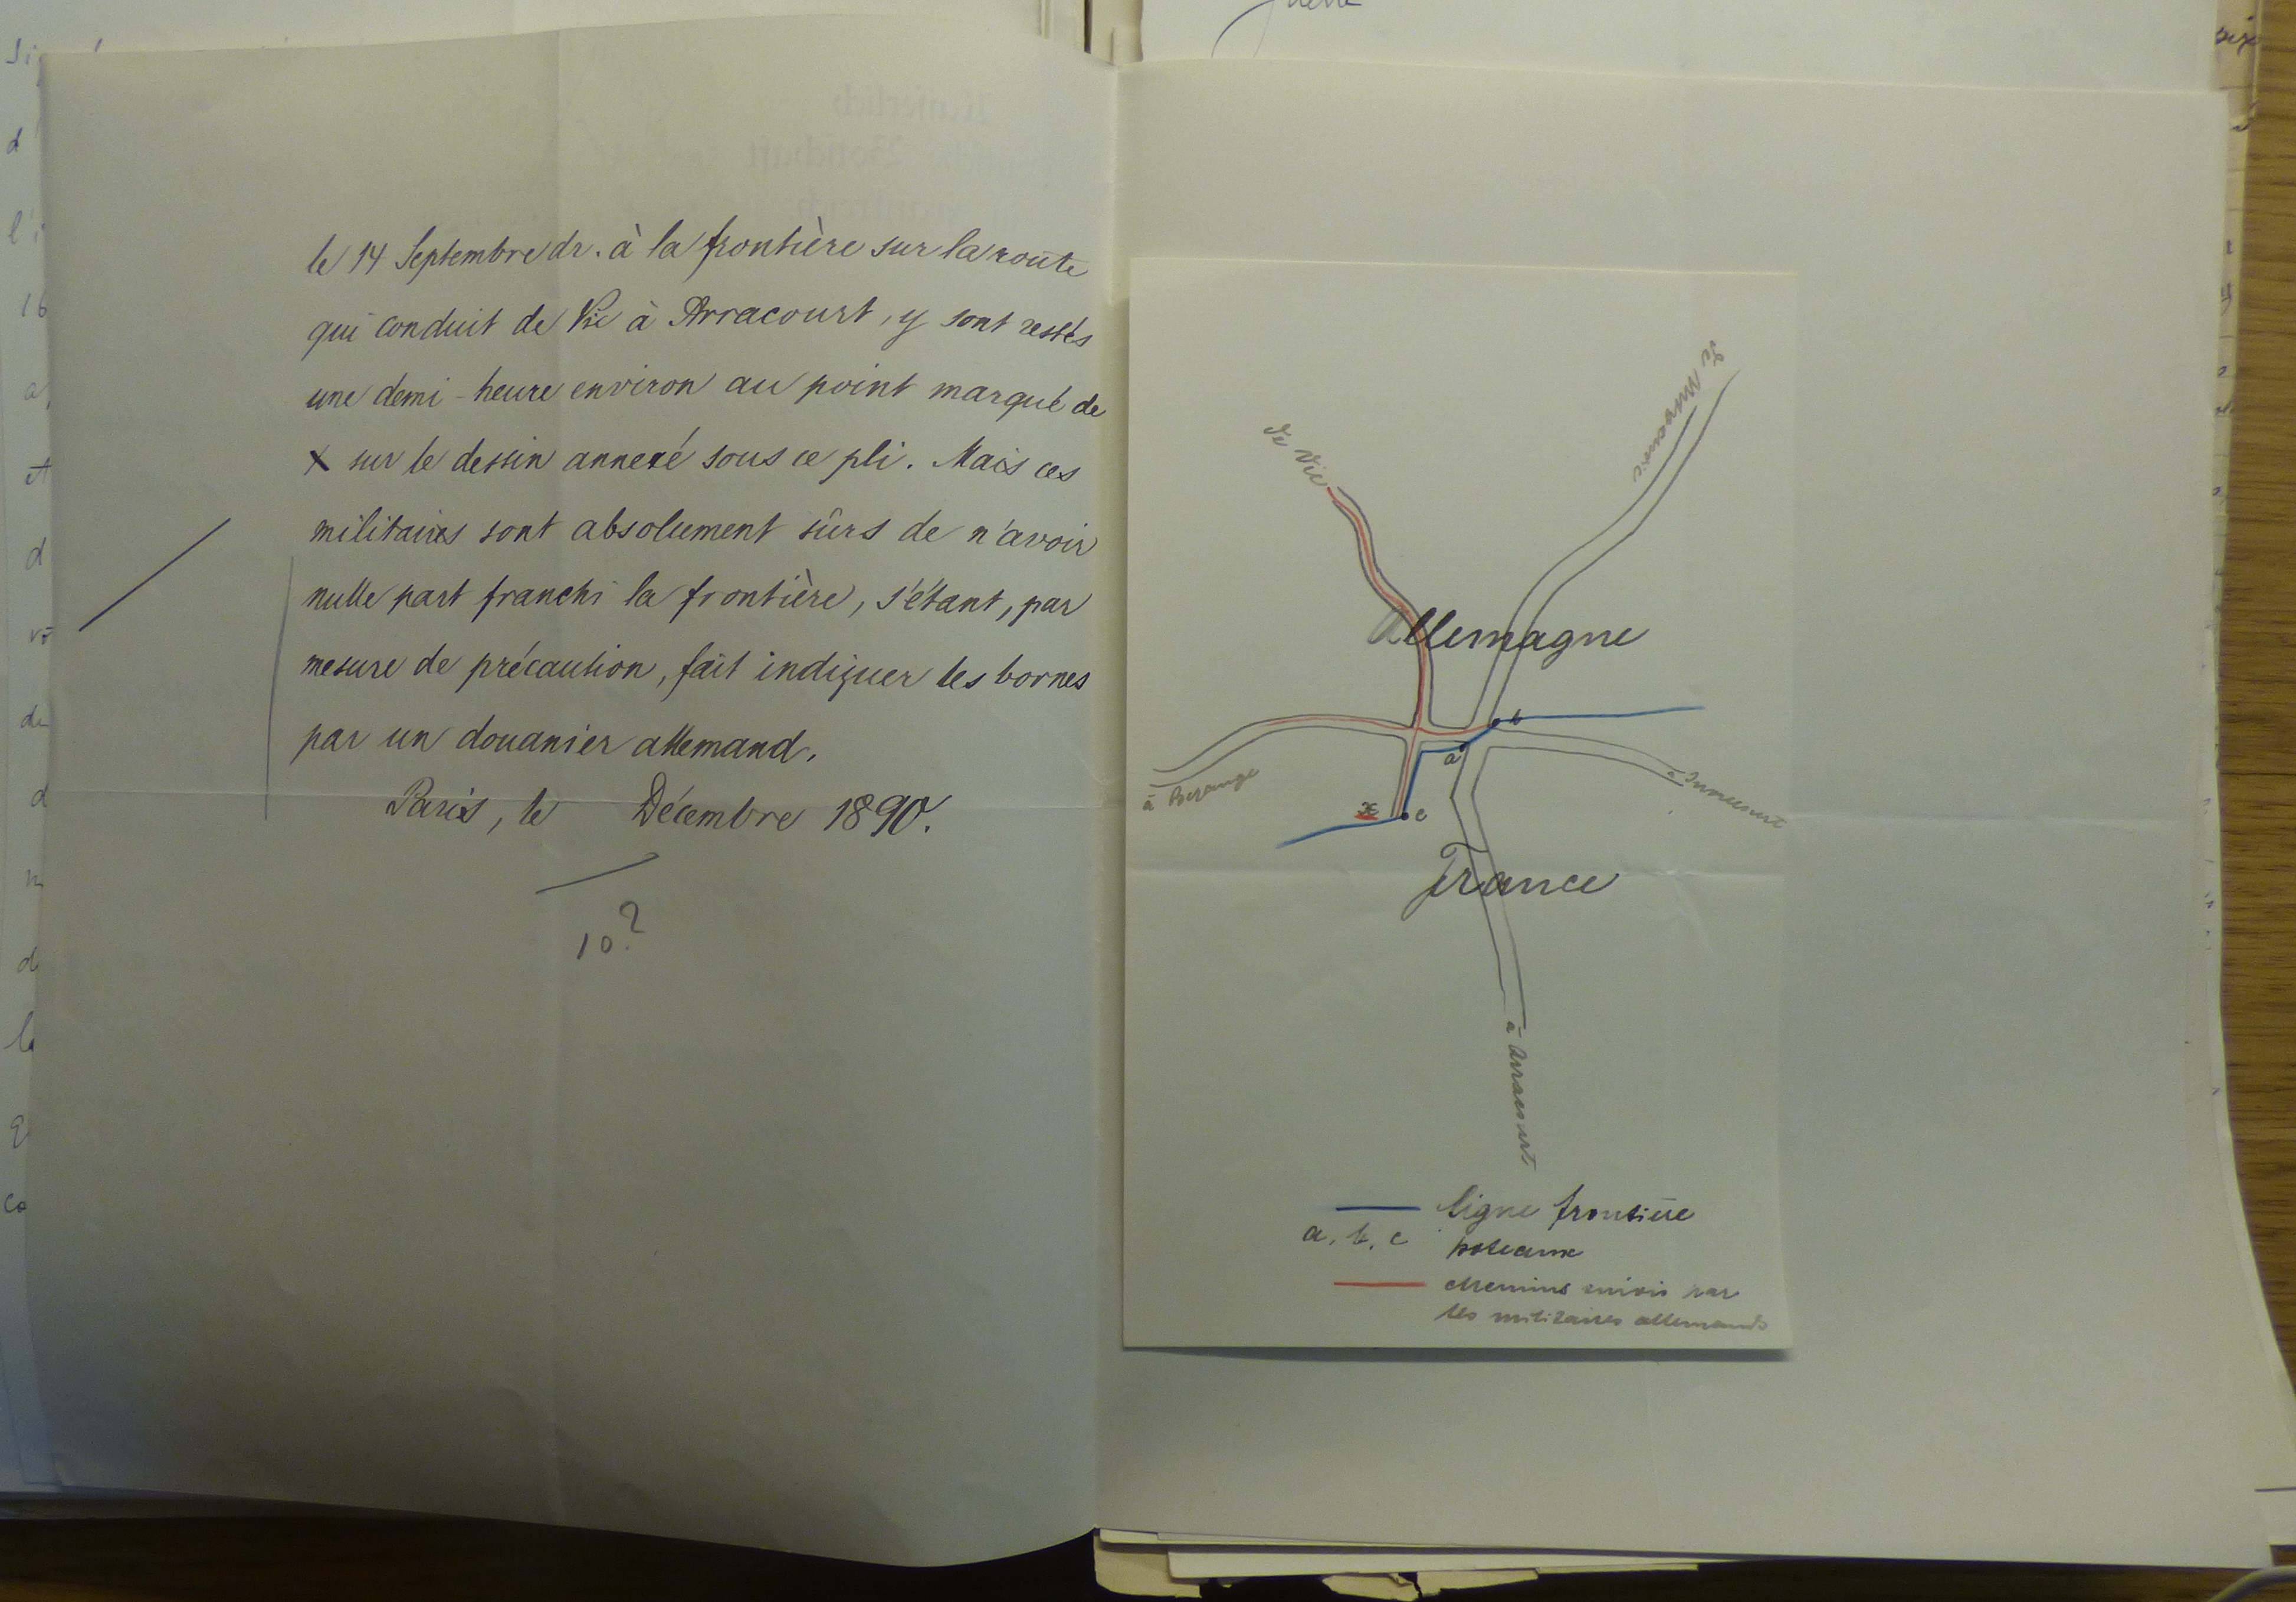 le 14 Septembre dr. à la frontière sur la route
qui conduit de Vic à Arracourt, y sont restés
une demi-heure environ au point marqué de
x sur le dessin annexé sous ce pli. Mais ces
militaires sont absolument sûrs de n'avoir
nulle part franchi la frontière, s'étant, par
mesure de précaution, fait indiquer les bornes
par un douanier allemand.
Paris, le Décembre 1890.
10?
de Vic
de
Allemagne
b
a
à Bezange
à
x
c
France
à Arracourt
ligne frontière
a, b, c poteaux
chemins suivis par
les militaires allemands